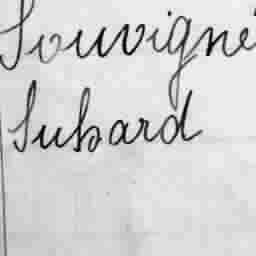 Souvigné
Suhard